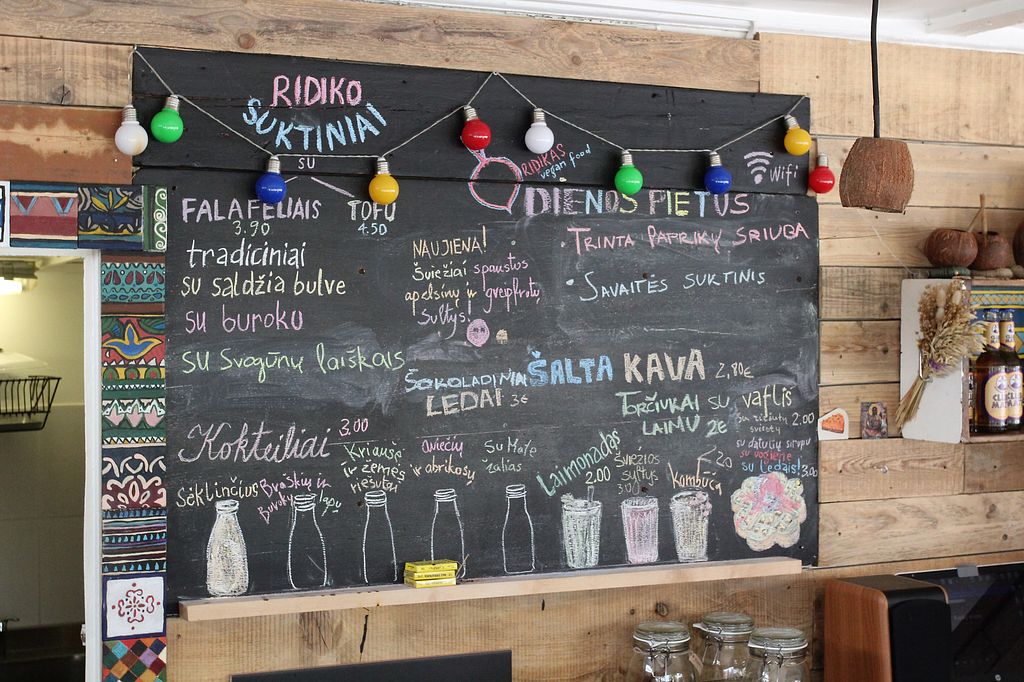 RIDIKO
SUKTINIAI
SU
FALAFELIAIS
3.90
TOFU
4.50
tradiciniai
su saldžia bulve
su buroku
su svogūnų laiškais
RIDIKAS
vegan food
wifi
NAUJIENA!
Šviežiai spaustos
apelsinų ir greipfrutų
sultys!
DIENOS PIETUS
• TRINTA PAPRIKŲ SRIUBA
• SAVAITĖS SUKTINIS
ŠOKOLADINIAI
LEDAI 3€
ŠALTA KAVA 2,80€
TORČIUKAI SU
LAIMU 2€
vaflis 2.00
su datulių sirupu
su uogiene
su ledais! 3.00
Kokteiliai 3.00
Sėklinčius
Braškių ir
Burokų lapų
Kriaušė
ir žemės
riešutai
aviečių
ir abrikosų
Su Mate
žalias
Laimonadas
2.00
Šviežios
sultys
3.00
Kombuča
2.20